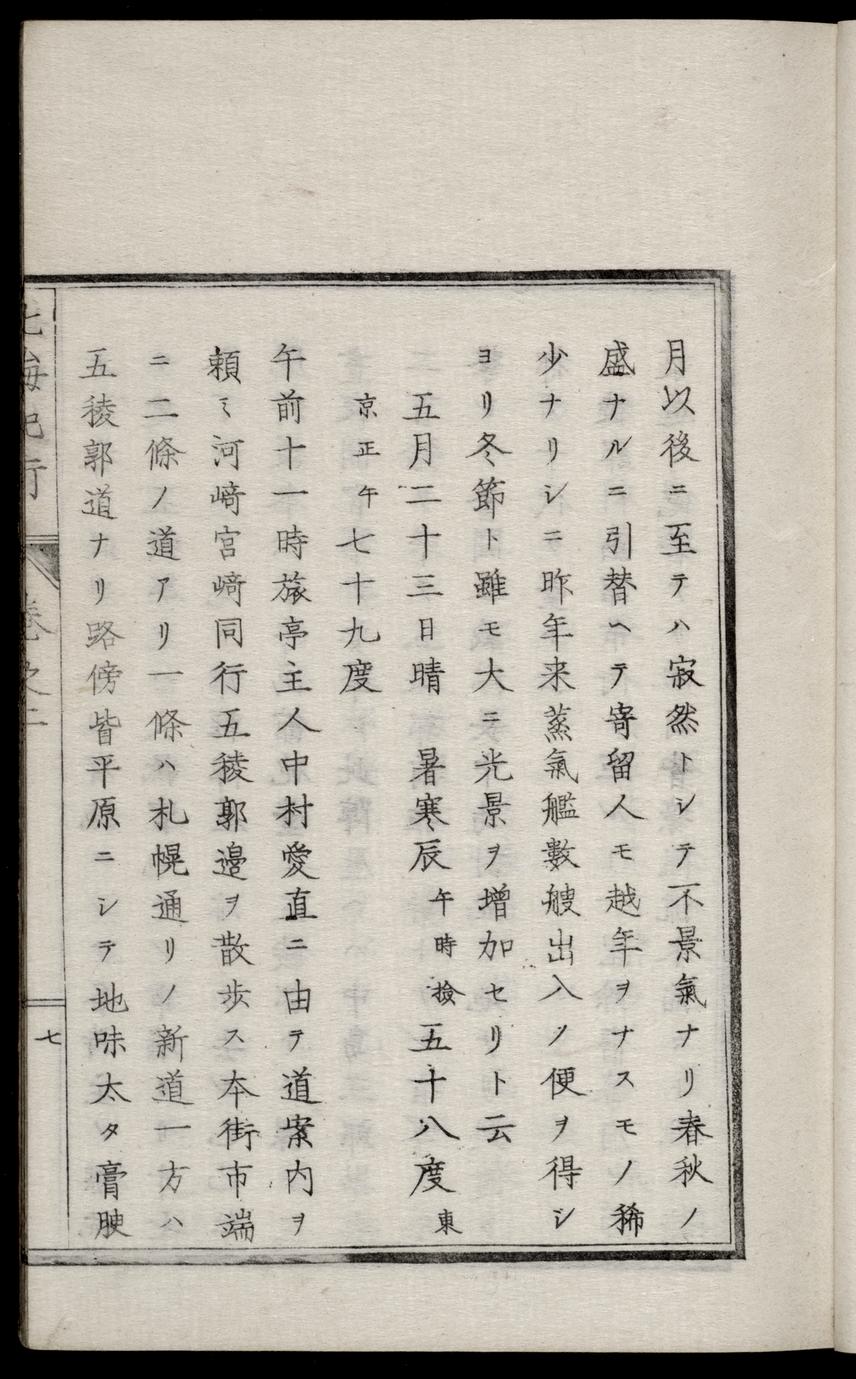 月以後ニ至テハ寂然トシテ不景氣ナリ春秋ノ
盛ナルニ引替ヘテ寄留人モ越年ヲナスモノ稀
少ナリシニ昨年来蒸氣艦數艘出入ノ便ヲ得シ
ヨリ冬節ト雖モ大ニ光景ヲ增加セリト云
五月二十三日晴 暑寒辰午時撿五十八度東
京正午七十九度
午前十一時旅亭主人中村愛直ニ由テ道案内ヲ
頼ミ河﨑宮﨑同行五稜郭邉ヲ散歩ス本街市端
ニ二條ノ道アリ一條ハ札幌通リノ新道一方ハ
五稜郭道ナリ路傍皆平原ニシテ地味太タ膏腴
北海紀行
卷之二
七